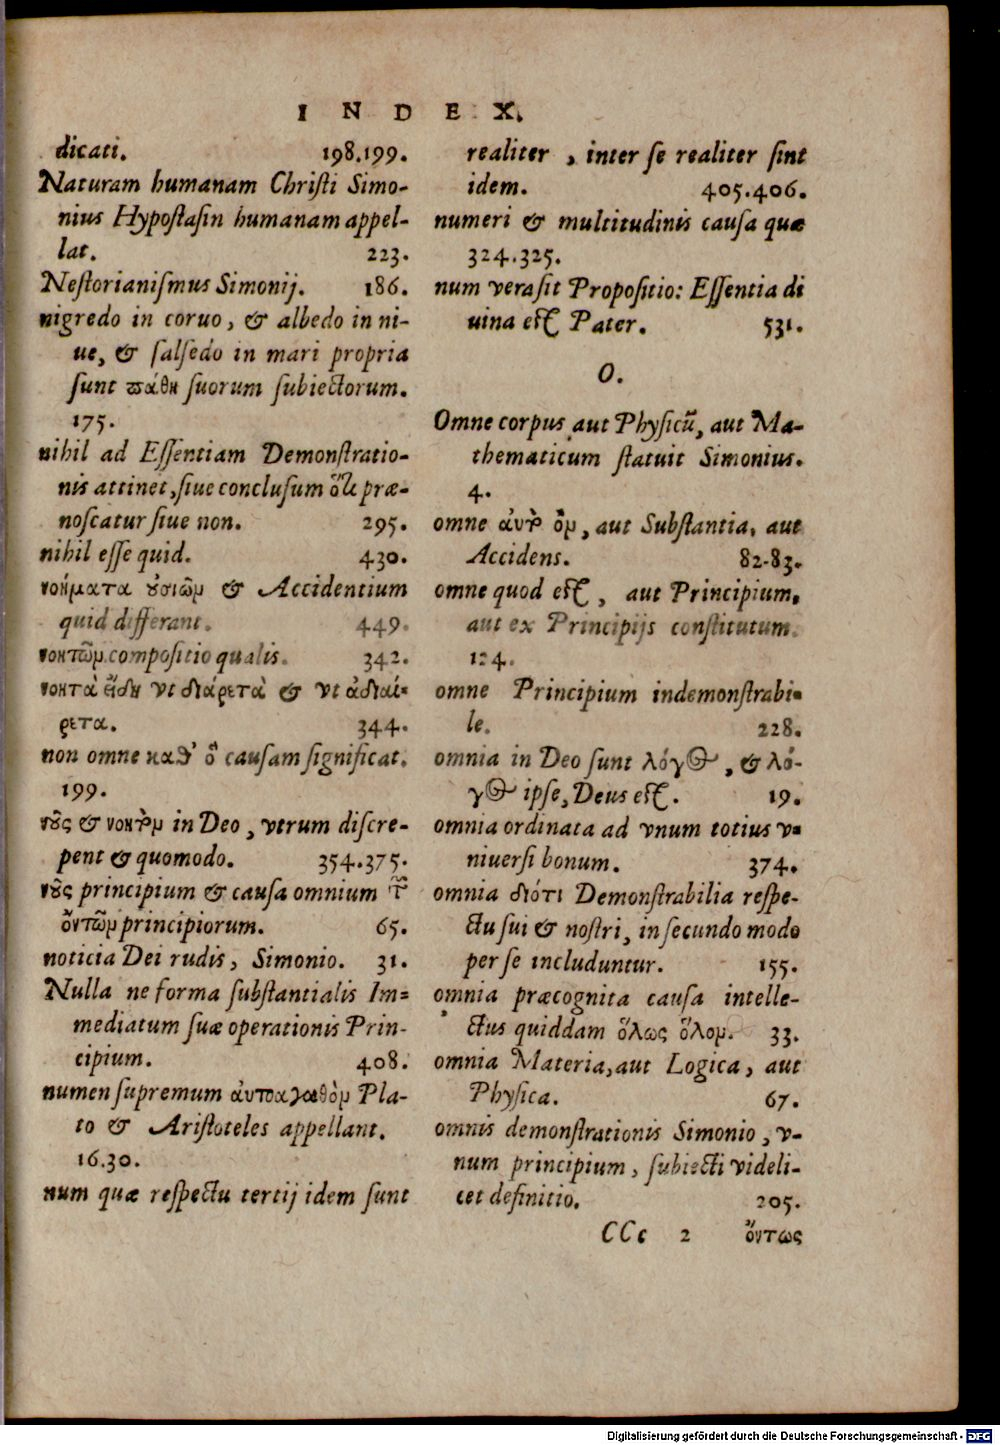 INDEX.
dicati. 198.199.
Naturam humanam Chriſti Simo-
nius Hypoſtaſin humanam appel-
lat. 223.
Neſtorianiſmus Simonij. 186.
nigredo in coruo, & albedo in ni-
ue, & ſalſedo in mari propria
ſunt πάθη ſuorum ſubiectorum.
175.
nihil ad Eſſentiam Demonſtratio-
nis attinet, ſiue concluſum præ-
noſcatur ſiue non. 295.
nihil eſſe quid. 430.
νοήματα ȣσιῶν & Accidentium
quid differant. 449.
νοητῶν compoſitio qualis. 342.
νοητὰ εἴδη vt διάρετὰ & vt ἀδιαί-
ρετα. 344.
non omne καθ' ὃ cauſam ſignificat.
199.
νȣ͂ς & νοητὸν in Deo, vtrum diſcre-
pent & quomodo. 354.375.
νȣ͂ς principium & cauſa omnium τ͂
ὄντων principiorum. 65.
noticia Dei rudis, Simonio. 31.
Nulla ne forma ſubſtantialis Im-
mediatum ſuæ operationis Prin-
cipium. 408.
numen ſupremum ἀυτοαγαθὸν Pla-
to & Ariſtoteles appellant.
16.30.
num quæ reſpectu tertij idem ſunt
realiter, inter ſe realiter ſint
idem. 405.406.
numeri & multitudinis cauſa quæ
324.325.
num vera ſit Propoſitio: Eſſentia di
uina eſt Pater. 531.
O.
Omne corpus aut Phyſicū, aut Ma-
thematicum ſtatuit Simonius.
4.
omne ὂν, aut Subſtantia, aut
Accidens. 82.83.
omne quod eſt, aut Principium,
aut ex Principijs conſtitutum.
124.
omne Principium indemonſtrabi-
le. 228.
omnia in Deo ſunt λόγος, & λό-
γος ipſe, Deus eſt. 19.
omnia ordinata ad vnum totius v-
niuerſi bonum. 374.
omnia διότι Demonſtrabilia reſpe-
ctu ſui & noſtri, in ſecundo modo
per ſe includuntur. 155.
omnia præcognita cauſa intelle-
ctus quiddam ὅλως ὅλον. 33.
omnia Materia, aut Logica, aut
Phyſica. 67.
omnis demonſtrationis Simonio, v-
num principium, ſubiecti videli-
cet definitio. 205.
CCc 2 ὄντως
Digitalisierung gefördert durch die Deutsche Forschungsgemeinschaft - DFG